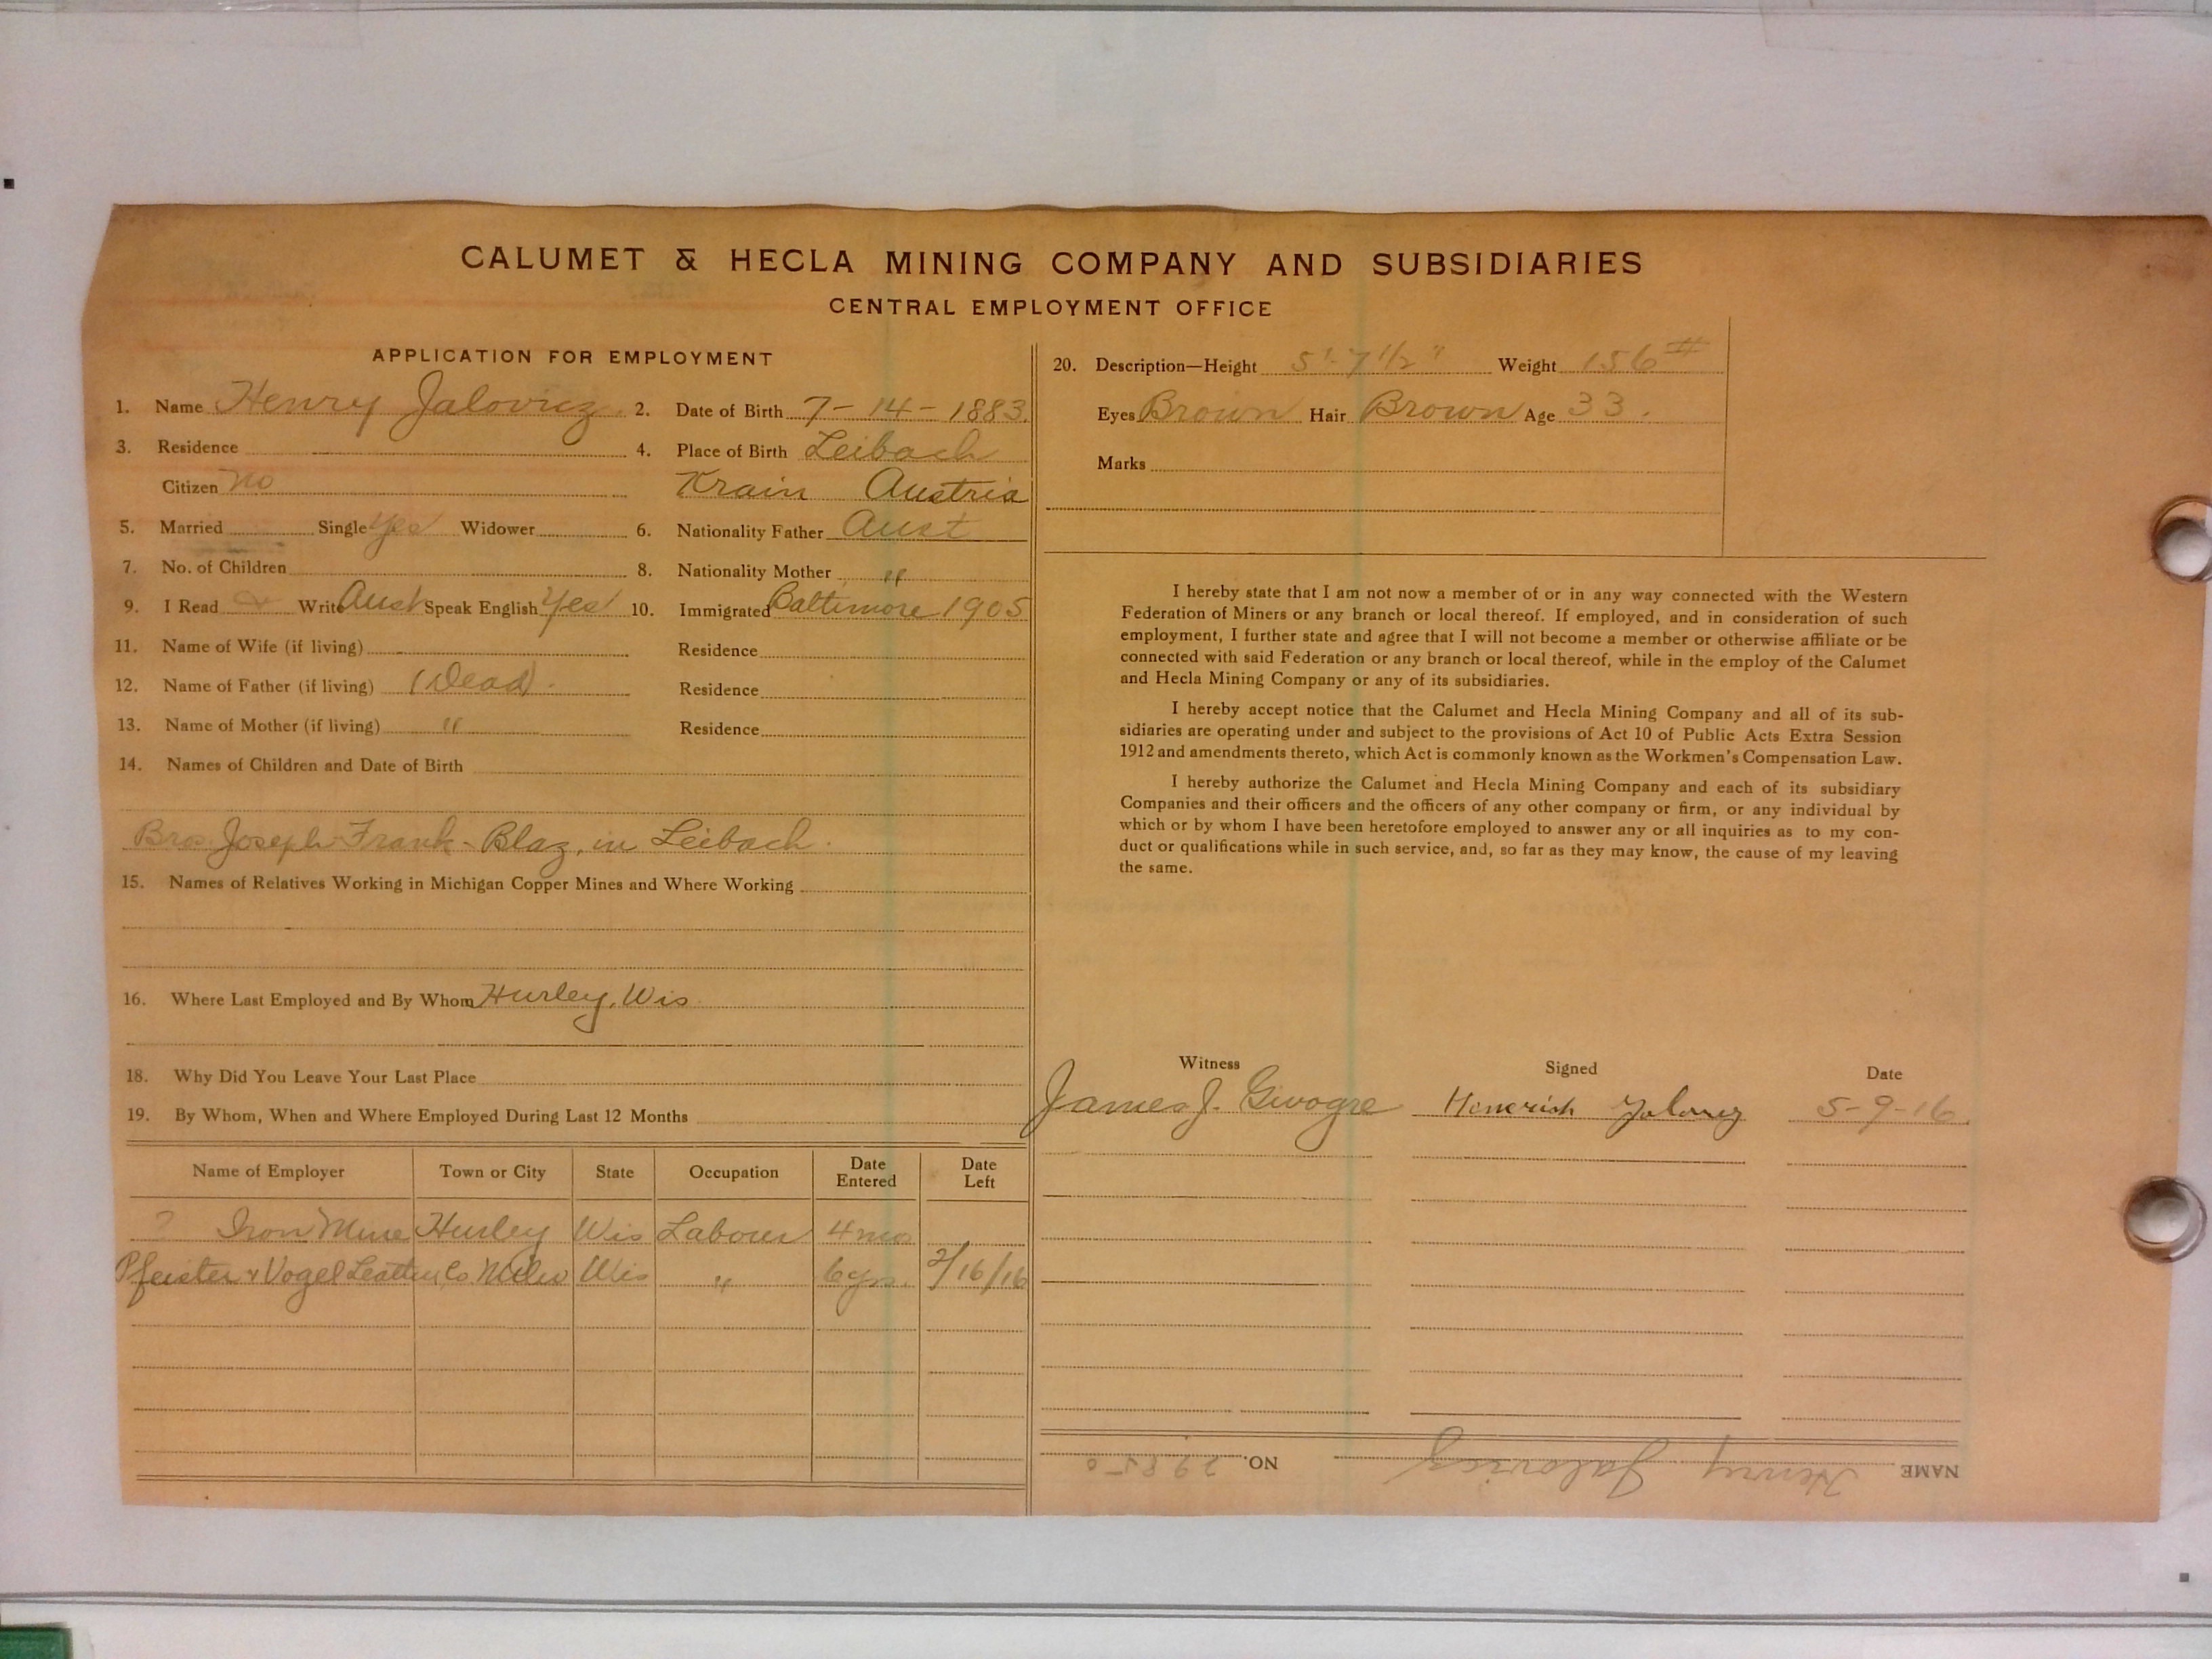 CALUMET & HECLA MINING COMPANY AND SUBSIDIARIES
CENTRAL EMPLOYMENT OFFICE
APPLICATION FOR EMPLOYMENT
1. Name Henry Jalovicz 2. Date of Birth 7-14-1883.
3. Residence 4. Place of Birth Leibach
Citizen no Krain Austria
5. Married Single yes Widower 6. Nationality Father Aust
7. No. of Children 8. Nationality Mother "
9. I Read Write Aust Speak English Yes 10. Immigrated Baltimore 1905
11. Name of Wife (if living) Residence
12. Name of Father (if living) (Dead). Residence
13. Name of Mother (if living) " Residence
14. Names of Children and Date of Birth
Bros. Joseph-Frank-Blaz, in Leibach.
15. Names of Relatives Working in Michigan Copper Mines and Where Working
16. Where Last Employed and By Whom Hurley, Wis
18. Why Did You Leave Your Last Place
19. By Whom, When and Where Employed During Last 12 Months
Name of Employer Town or City State Occupation Date Entered Date Left
? Iron Mine Hurley Wis Laborer 4 mos
Pfeister & Vogel Leather Co Milw Wis " 6 yrs. 2/16/16
20. Description—Height 5'-7 1/2" Weight 156 #
Eyes Brown Hair Brown Age 33.
Marks
I hereby state that I am not now a member of or in any way connected with the Western
Federation of Miners or any branch or local thereof. If employed, and in consideration of such
employment, I further state and agree that I will not become a member or otherwise affiliate or be
connected with said Federation or any branch or local thereof, while in the employ of the Calumet
and Hecla Mining Company or any of its subsidiaries.
I hereby accept notice that the Calumet and Hecla Mining Company and all of its sub-
sidiaries are operating under and subject to the provisions of Act 10 of Public Acts Extra Session
1912 and amendments thereto, which Act is commonly known as the Workmen's Compensation Law.
I hereby authorize the Calumet and Hecla Mining Company and each of its subsidiary
Companies and their officers and the officers of any other company or firm, or any individual by
which or by whom I have been heretofore employed to answer any or all inquiries as to my con-
duct or qualifications while in such service, and, so far as they may know, the cause of my leaving
the same.
Witness Signed Date
James J. 5-9-16
NAME Henry Jalovicz NO. 29850